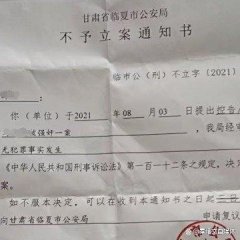 甘肃省临夏市公安局
不予立案通知书
临市公(刑)不立字〔2021〕
你(单位)于2021年08月03日提出控告
被强奸一案
我局经审
无犯罪事实发生
《中华人民共和国刑事诉讼法》第一百一十二条之规定,决定
案。
如不服本决定,可以在收到本通知书之日起
向甘肃省临夏市公安局
申请复议